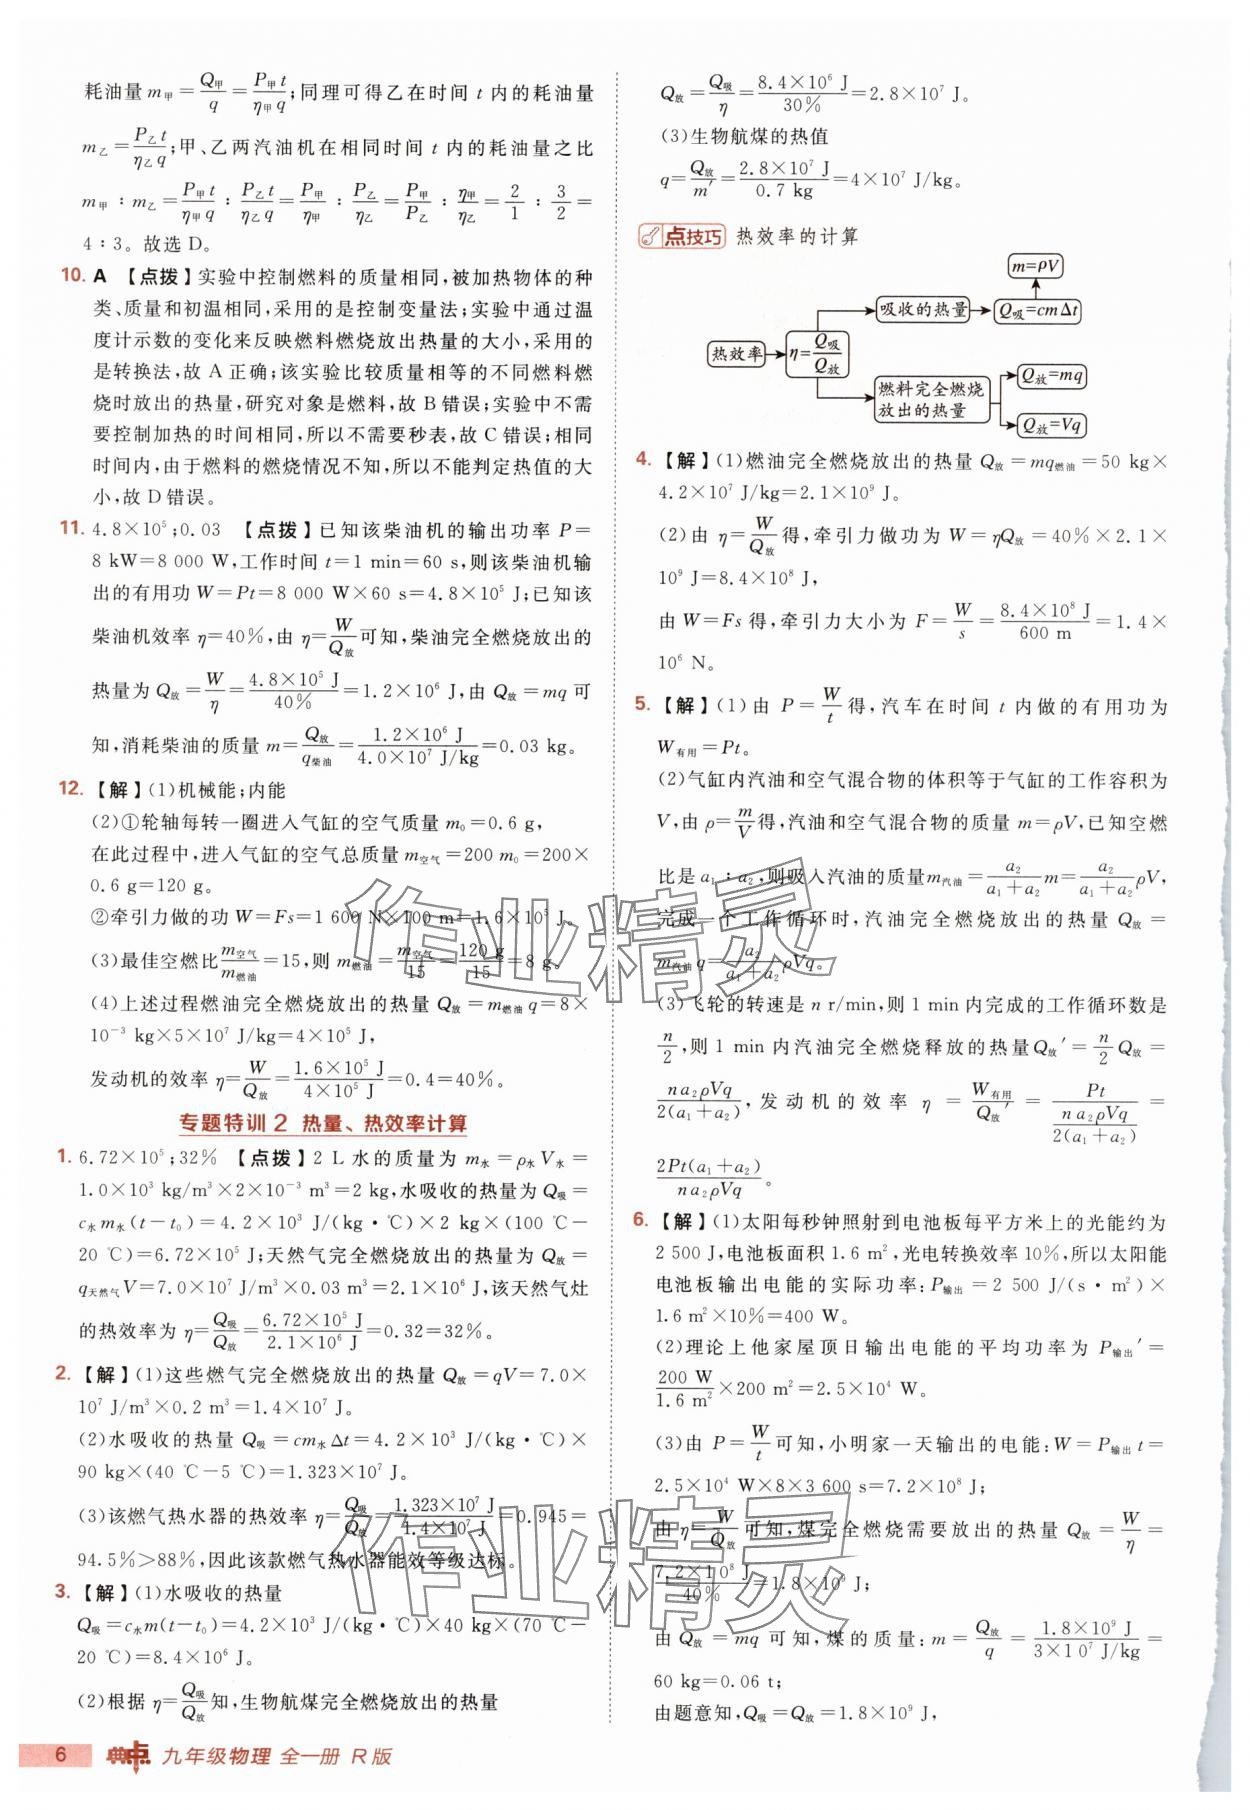 耗油量 m甲=Q甲/q=P甲t/(η甲q);同理可得乙在时间 t 内的耗油量
m乙=P乙t/(η乙q);甲、乙两汽油机在相同时间 t 内的耗油量之比
m甲∶m乙=P甲t/(η甲q)∶P乙t/(η乙q)=P甲/η甲∶P乙/η乙=P甲/P乙∶η甲/η乙=2/1∶3/2=
4∶3。故选 D。
10. A 【点拨】实验中控制燃料的质量相同,被加热物体的种
类、质量和初温相同,采用的是控制变量法;实验中通过温
度计示数的变化来反映燃料燃烧放出热量的大小,采用的
是转换法,故 A 正确;该实验比较质量相等的不同燃料燃
烧时放出的热量,研究对象是燃料,故 B 错误;实验中不需
要控制加热的时间相同,所以不需要秒表,故 C 错误;相同
时间内,由于燃料的燃烧情况不知,所以不能判定热值的大
小,故 D 错误。
11. 4.8×10⁵;0.03 【点拨】已知该柴油机的输出功率 P=
8 kW=8 000 W,工作时间 t=1 min=60 s,则该柴油机输
出的有用功 W=Pt=8 000 W×60 s=4.8×10⁵ J;已知该
柴油机效率 η=40%,由 η=W/Q放可知,柴油完全燃烧放出的
热量为 Q放=W/η=4.8×10⁵ J/40%=1.2×10⁶ J,由 Q放=mq 可
知,消耗柴油的质量 m=Q放/q柴油=1.2×10⁶ J/(4.0×10⁷ J/kg)=0.03 kg。
12. 【解】(1)机械能;内能
(2)①轮轴每转一圈进入气缸的空气质量 m₀=0.6 g,
在此过程中,进入气缸的空气总质量 m空气=200 m₀=200×
0.6 g=120 g。
②牵引力做的功 W=Fs=1 600 N×100 m=1.6×10⁵ J。
(3)最佳空燃比m空气/m燃油=15,则 m燃油=m空气/15=120 g/15=8 g。
(4)上述过程燃油完全燃烧放出的热量 Q放=m燃油q=8×
10⁻³ kg×5×10⁷ J/kg=4×10⁵ J,
发动机的效率 η=W/Q放=1.6×10⁵ J/(4×10⁵ J)=0.4=40%。
专题特训2 热量、热效率计算
1. 6.72×10⁵;32% 【点拨】2 L 水的质量为 m水=ρ水V水=
1.0×10³ kg/m³×2×10⁻³ m³=2 kg,水吸收的热量为 Q吸=
c水m水(t-t₀)=4.2×10³ J/(kg·℃)×2 kg×(100 ℃-
20 ℃)=6.72×10⁵ J;天然气完全燃烧放出的热量为 Q放=
q天然气V=7.0×10⁷ J/m³×0.03 m³=2.1×10⁶ J,该天然气灶
的热效率为 η=Q吸/Q放=6.72×10⁵ J/(2.1×10⁶ J)=0.32=32%。
2. 【解】(1)这些燃气完全燃烧放出的热量 Q放=qV=7.0×
10⁷ J/m³×0.2 m³=1.4×10⁷ J。
(2)水吸收的热量 Q吸=cm水Δt=4.2×10³ J/(kg·℃)×
90 kg×(40 ℃-5 ℃)=1.323×10⁷ J。
(3)该燃气热水器的热效率 η=Q吸/Q放=1.323×10⁷ J/(1.4×10⁷ J)=0.945=
94.5%>88%,因此该款燃气热水器能效等级达标。
3. 【解】(1)水吸收的热量
Q吸=c水m(t-t₀)=4.2×10³ J/(kg·℃)×40 kg×(70 ℃-
20 ℃)=8.4×10⁶ J。
(2)根据 η=Q吸/Q放知,生物航煤完全燃烧放出的热量
Q放=Q吸/η=8.4×10⁶ J/30%=2.8×10⁷ J。
(3)生物航煤的热值
q=Q放/m′=2.8×10⁷ J/0.7 kg=4×10⁷ J/kg。
点技巧 热效率的计算
m=ρV
吸收的热量
Q吸=cmΔt
热效率
η=Q吸/Q放
燃料完全燃烧
放出的热量
Q放=mq
Q放=Vq
4. 【解】(1)燃油完全燃烧放出的热量 Q放=mq燃油=50 kg×
4.2×10⁷ J/kg=2.1×10⁹ J。
(2)由 η=W/Q放得,牵引力做功为 W=ηQ放=40%×2.1×
10⁹ J=8.4×10⁸ J,
由 W=Fs 得,牵引力大小为 F=W/s=8.4×10⁸ J/600 m=1.4×
10⁶ N。
5. 【解】(1)由 P=W/t得,汽车在时间 t 内做的有用功为
W有用=Pt。
(2)气缸内汽油和空气混合物的体积等于气缸的工作容积为
V,由 ρ=m/V得,汽油和空气混合物的质量 m=ρV,已知空燃
比是 a₁∶a₂,则吸入汽油的质量m汽油=a₂/(a₁+a₂)m=a₂/(a₁+a₂)ρV,
完成一个工作循环时,汽油完全燃烧放出的热量 Q放=
m汽油q=a₂/(a₁+a₂)ρVq。
(3)飞轮的转速是 n r/min,则 1 min 内完成的工作循环数是
n/2,则 1 min 内汽油完全燃烧释放的热量Q放′=n/2Q放=
na₂ρVq/2(a₁+a₂),发动机的效率 η=W有用/Q放′=Pt/[na₂ρVq/2(a₁+a₂)]=
2Pt(a₁+a₂)/na₂ρVq。
6. 【解】(1)太阳每秒钟照射到电池板每平方米上的光能约为
2 500 J,电池板面积 1.6 m²,光电转换效率 10%,所以太阳能
电池板输出电能的实际功率:P输出=2 500 J/(s·m²)×
1.6 m²×10%=400 W。
(2)理论上他家屋顶日输出电能的平均功率为 P输出′=
200 W/1.6 m²×200 m²=2.5×10⁴ W。
(3)由 P=W/t可知,小明家一天输出的电能:W=P输出t=
2.5×10⁴ W×8×3 600 s=7.2×10⁸ J;
由 η=W/Q放可知,煤完全燃烧需要放出的热量 Q放=W/η=
7.2×10⁸ J/40%=1.8×10⁹ J;
由 Q放=mq 可知,煤的质量:m=Q放/q=1.8×10⁹ J/(3×10⁷ J/kg)=
60 kg=0.06 t;
由题意知,Q吸=Q放=1.8×10⁹ J,
作业精灵
作业精灵
6 典中点 九年级物理 全一册 R版